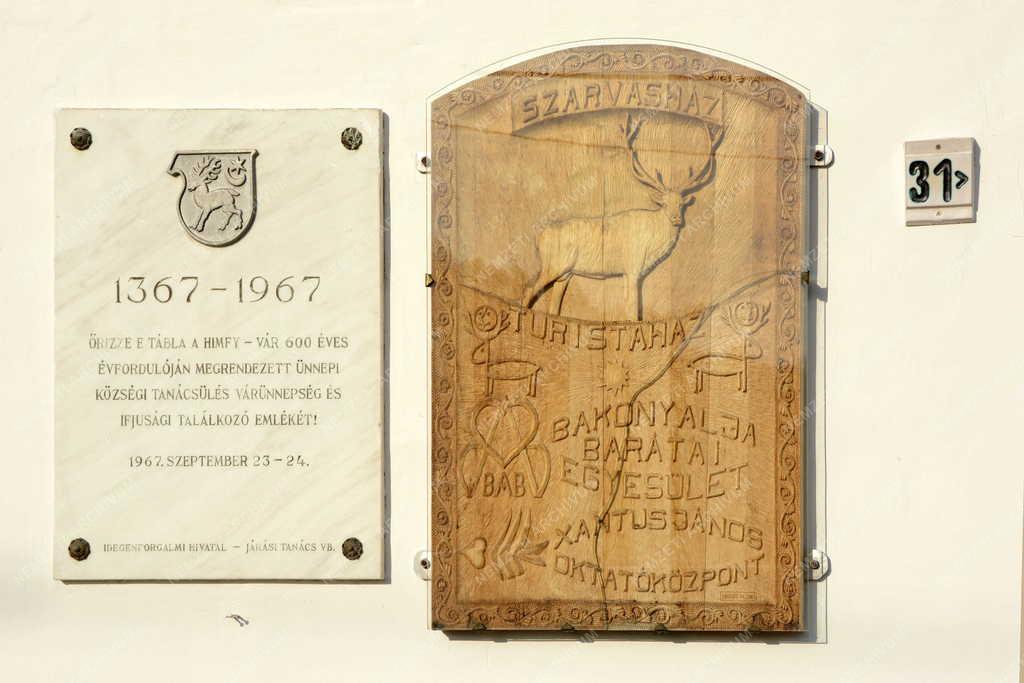 1367-1967
ŐRIZZE E TÁBLA A HIMFY - VÁR 600 ÉVES
ÉVFORDULÓJÁN MEGRENDEZETT ÜNNEPI
KÖZSÉGI TANÁCSÜLÉS VÁRÜNNEPSÉG ÉS
IFJUSÁGI TALÁLKOZÓ EMLÉKÉT!
1967. SZEPTEMBER 23-24.
IDEGENFORGALMI HIVATAL - JÁRÁSI TANÁCS VB.
SZARVASHÁZ
TURISTAHÁZ
BAKONYALJA
BARÁTAI
EGYESÜLET
BAB
XANTUS JÁNOS
OKTATÓKÖZPONT
31>